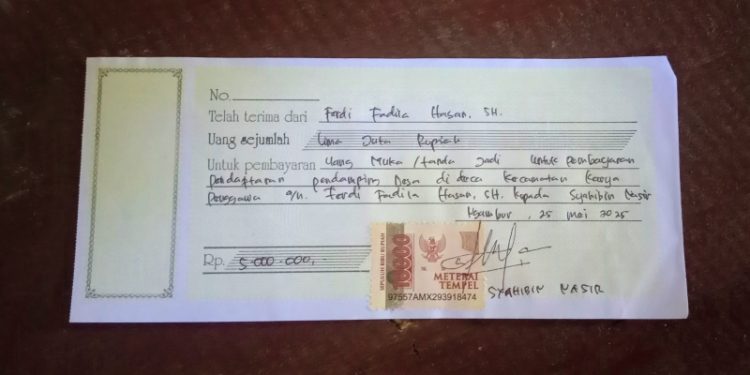 No.
Telah terima dari Ferdi Fadila Hasan, SH.
Uang sejumlah Lima Juta Rupiah
Untuk pembayaran Uang Muka / tanda jadi untuk pembayaran
pendaptaran pendamping Desa di desa Kecamatan Karya
Penggawa a/n. Ferdi Fadila Hasan, SH. kepada Syahibin Nasir
Ngambur, 25 Mei 2025
Rp. 5.000.000,-
SEPULUH RIBU RUPIAH
10000
METERAI
TEMPEL
97557AMX293918474
SYAHIBIN NASIR